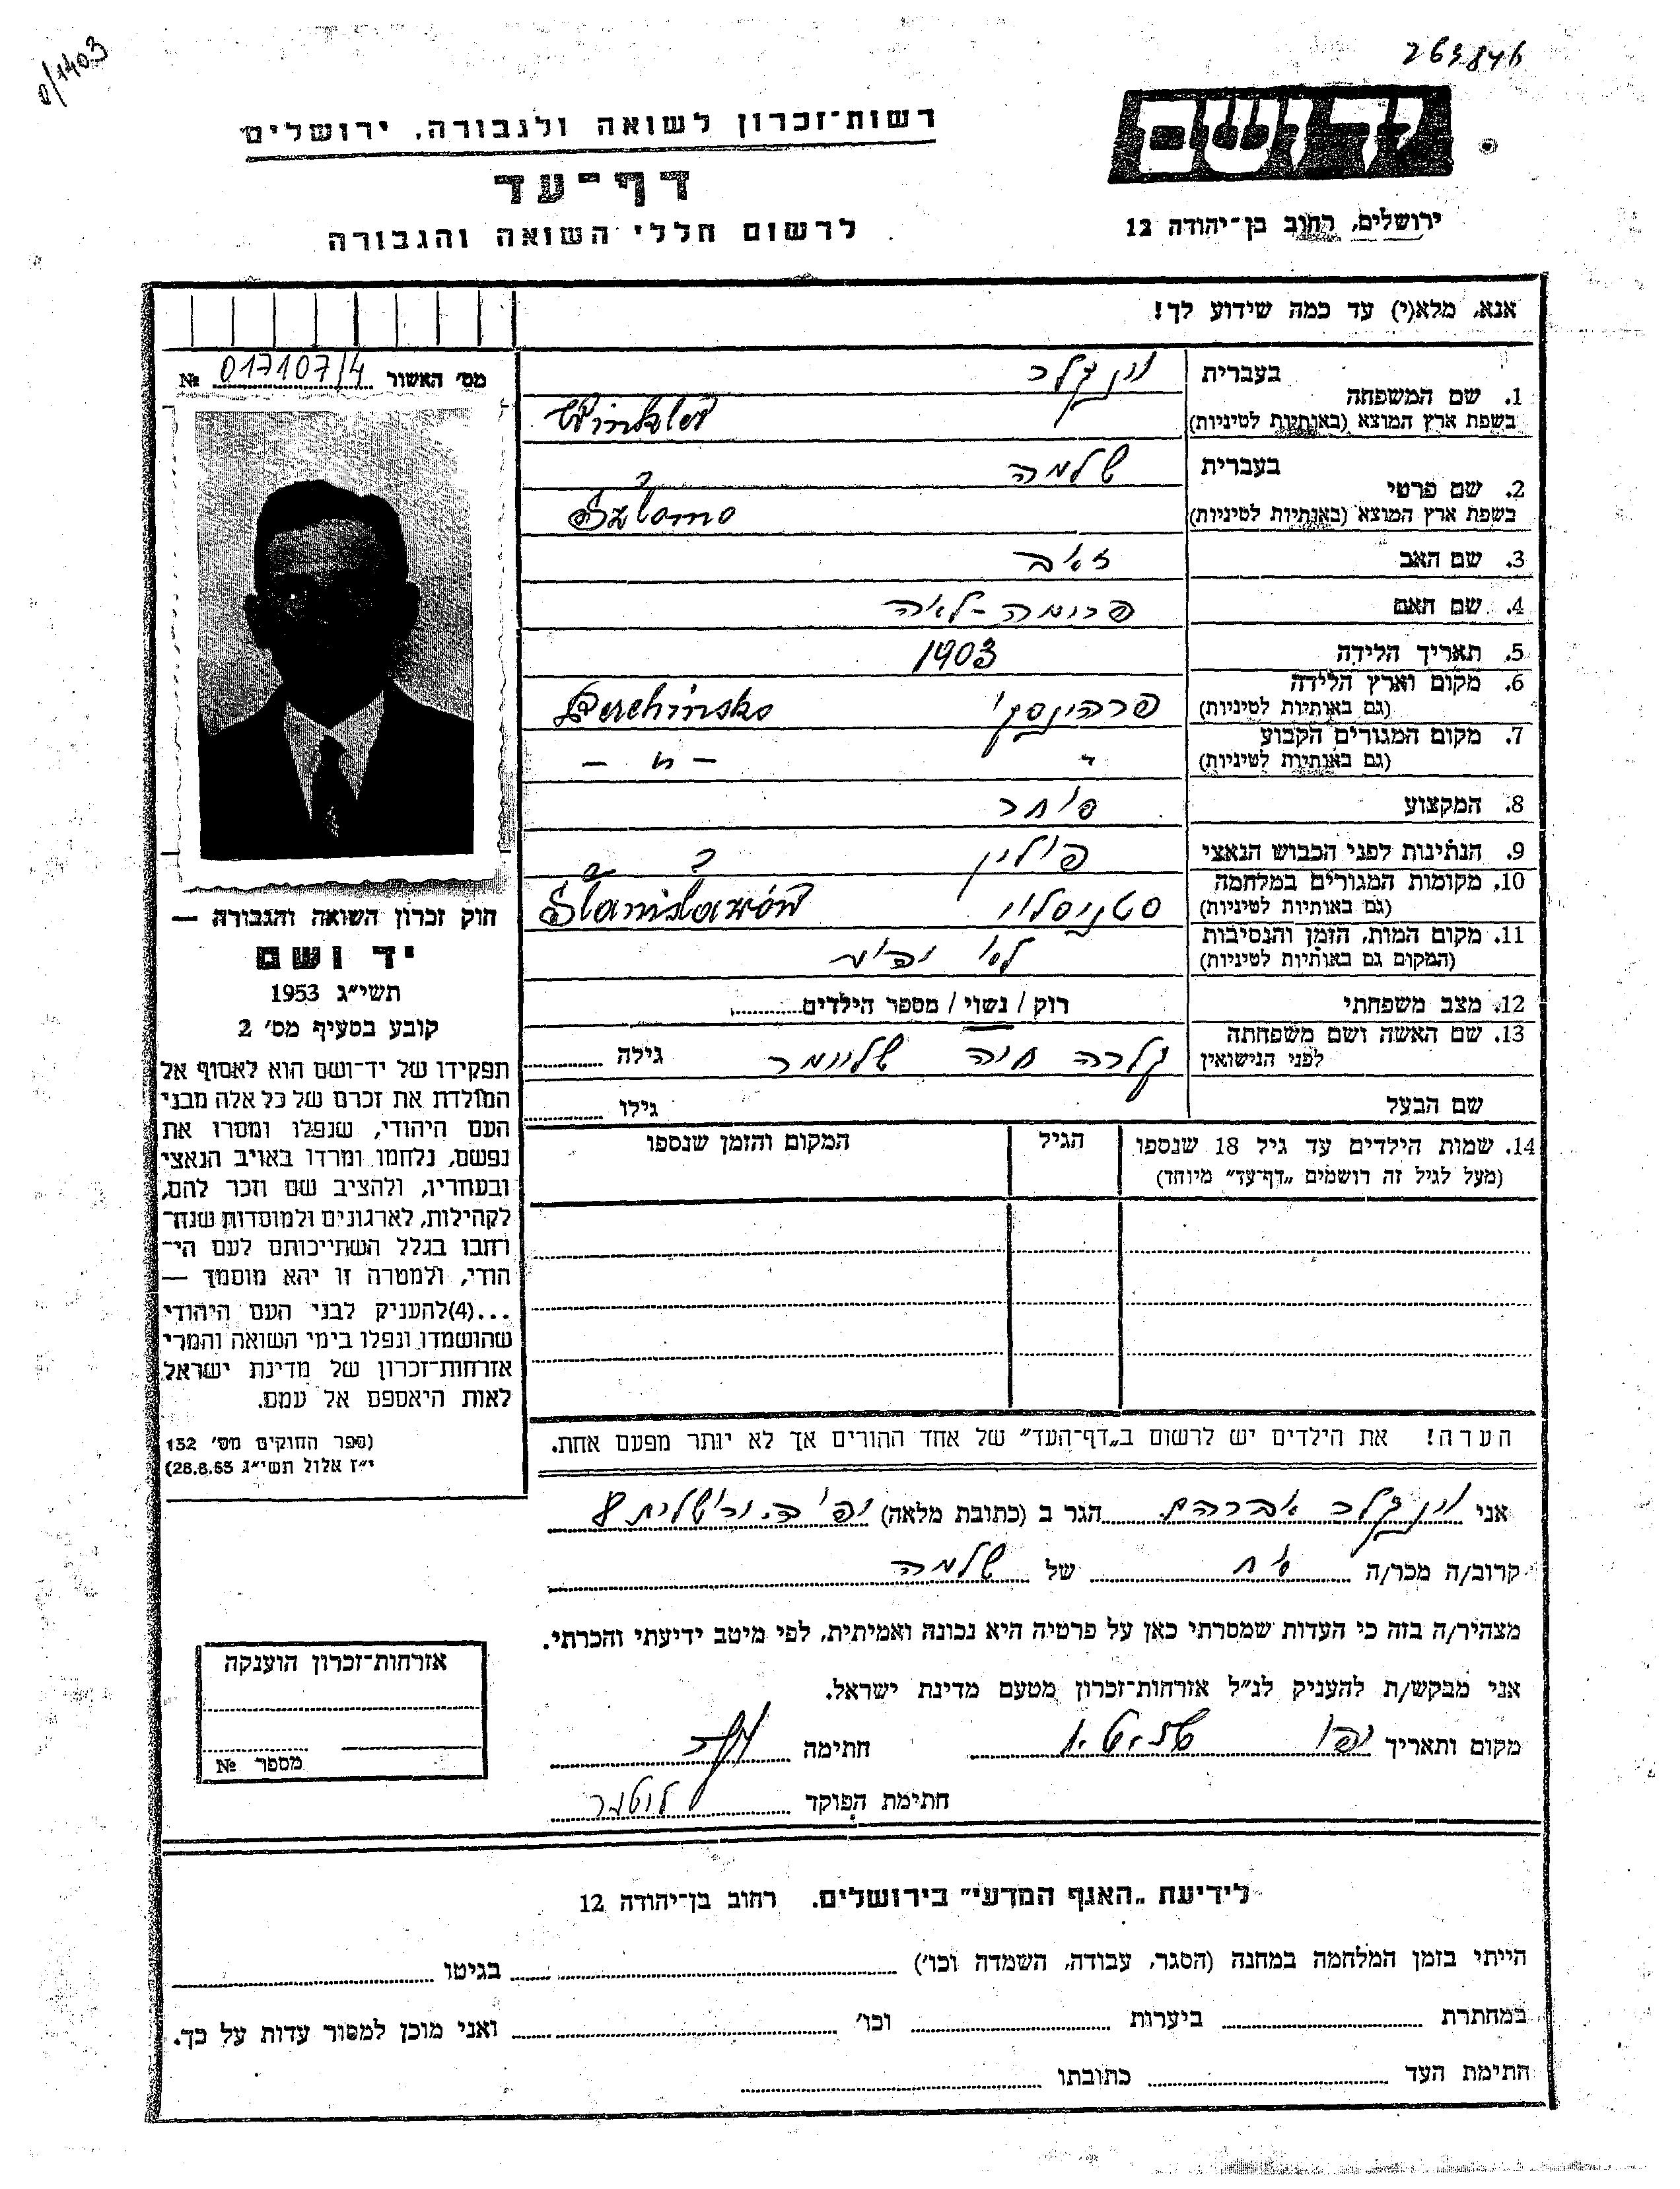 0/1403
263846
ידושם
רשות־זכרון לשואה ולגבורה, ירושלים
דף־עד
לרשום חללי השואה והגבורה
ירושלים, רחוב בן־יהודה 12
אנא, מלא(י) עד כמה שידוע לך!
מס׳ האשור 017107/4 №
1. שם המשפחה בעברית וינקלר
בשפת ארץ המוצא (באותיות לטיניות) Winkler
2. שם פרטי בעברית שלמה
בשפת ארץ המוצא (באותיות לטיניות) Szlomo
3. שם האב זאב
4. שם האם פרומה-לאה
5. תאריך הלידה 1903
6. מקום וארץ הלידה (גם באותיות לטיניות) פרהינסקו Perehinsko
7. מקום המגורים הקבוע (גם באותיות לטיניות) - " -
8. המקצוע סוחר
9. הנתינות לפני הכבוש הנאצי פולין
10. מקומות המגורים במלחמה (גם באותיות לטיניות) סטניסלוי Stanisławów
11. מקום המות, הזמן והנסיבות (המקום גם באותיות לטיניות) לא
12. מצב משפחתי רוק / נשוי / מספר הילדים
13. שם האשה ושם משפחתה לפני הנישואין קלרה חיה שלוימר גילה
שם הבעל גילו
14. שמות הילדים עד גיל 18 שנספו הגיל המקום והזמן שנספו
(מעל לגיל זה רושמים „דף־עד״ מיוחד)
הערה! את הילדים יש לרשום ב„דף־העד״ של אחד ההורים אך לא יותר מפעם אחת.
חוק זכרון השואה והגבורה —
יד ושם
תשי״ג 1953
קובע בסעיף מס׳ 2
תפקידו של יד־ושם הוא לאסוף אל
המולדת את זכרם של כל אלה מבני
העם היהודי, שנפלו ומסרו את
נפשם, נלחמו ומרדו באויב הנאצי
ובעוזריו, ולהציב שם וזכר להם,
לקהילות, לארגונים ולמוסדות שנח־
רבו בגלל השתייכותם לעם הי־
הודי, ולמטרה זו יהא מוסמך —
...(4)להעניק לבני העם היהודי
שהושמדו ונפלו בימי השואה והמרי
אזרחות־זכרון של מדינת ישראל
לאות היאספם אל עמם.
(ספר החוקים מס׳ 132
י״ז אלול תשי״ג 28.8.53)
אני וינקלר אברהם הגר ב (כתובת מלאה) יפו ירושלים 8
קרוב/ה מכר/ה אח של שלמה
מצהיר/ה בזה כי העדות שמסרתי כאן על פרטיה היא נכונה ואמיתית, לפי מיטב ידיעתי והכרתי.
אני מבקש/ת להעניק לנ״ל אזרחות־זכרון מטעם מדינת ישראל.
מקום ותאריך יפו חתימה
חתימת הפוקד
אזרחות־זכרון הוענקה
מספר №
לידיעת „האגף המדעי״ בירושלים, רחוב בן־יהודה 12
הייתי בזמן המלחמה במחנה (הסגר, עבודה, השמדה וכו׳) בגיטו
במחתרת ביערות וכו׳ ואני מוכן למסור עדות על כך.
חתימת העד כתובתו